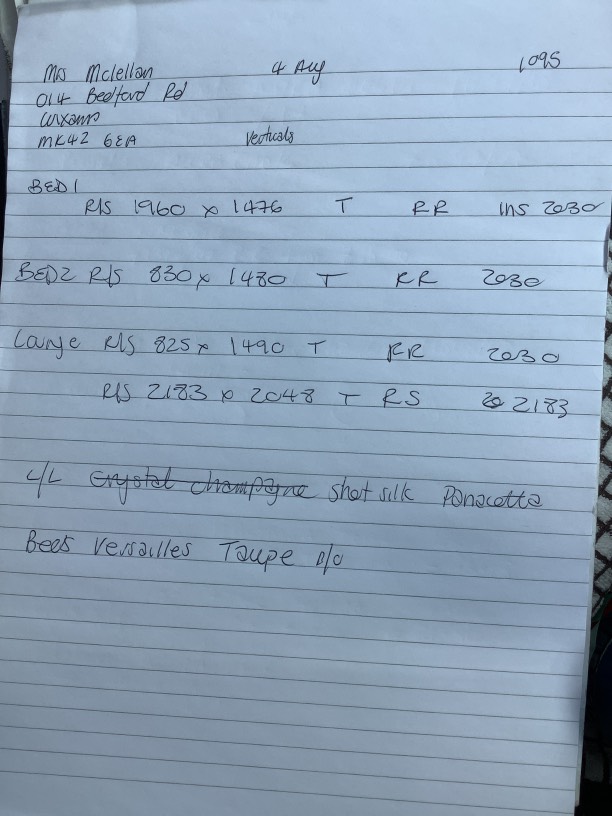 Mrs Mclellan 4 Aug 1095
Old Bedford Rd
Wixams
MK42 6EA Verticals
BED 1
R/S 1960 x 1476 T RR ins 2030
BED2 R/S 830 x 1480 T RR 2030
Lounge R/S 825 x 1490 T RR 2030
R/S 2183 x 2048 T RS 2183
L/L Crystal champagne shot silk Panacotta
Beds Versailles Taupe